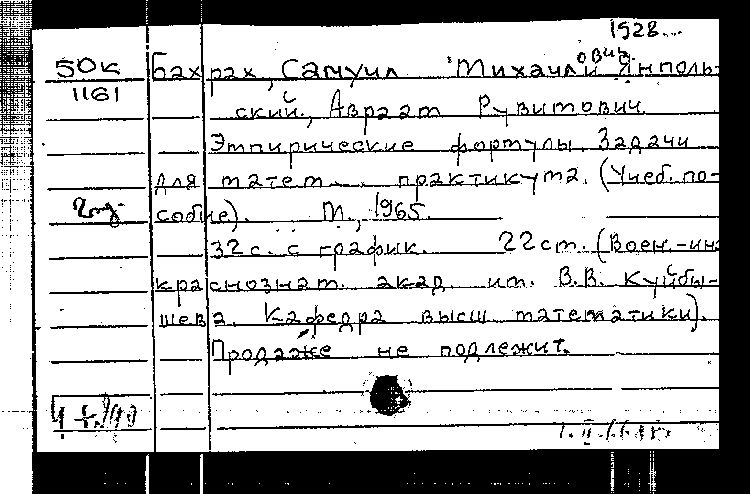 1928
50К Бахрах, Самуил Михайлович, Янполь-
1161 ский, Авраам Рувимович
Эмпирические формулы. Задачи
для матем. практикума. (Учеб. по-
собие). М., 1965.
32 с. с график. 22 см. (Воен.-инж
краснознам. акад. им. В.В. Куйбы-
шева. Кафедра высш математики).
Продаже не подлежит.